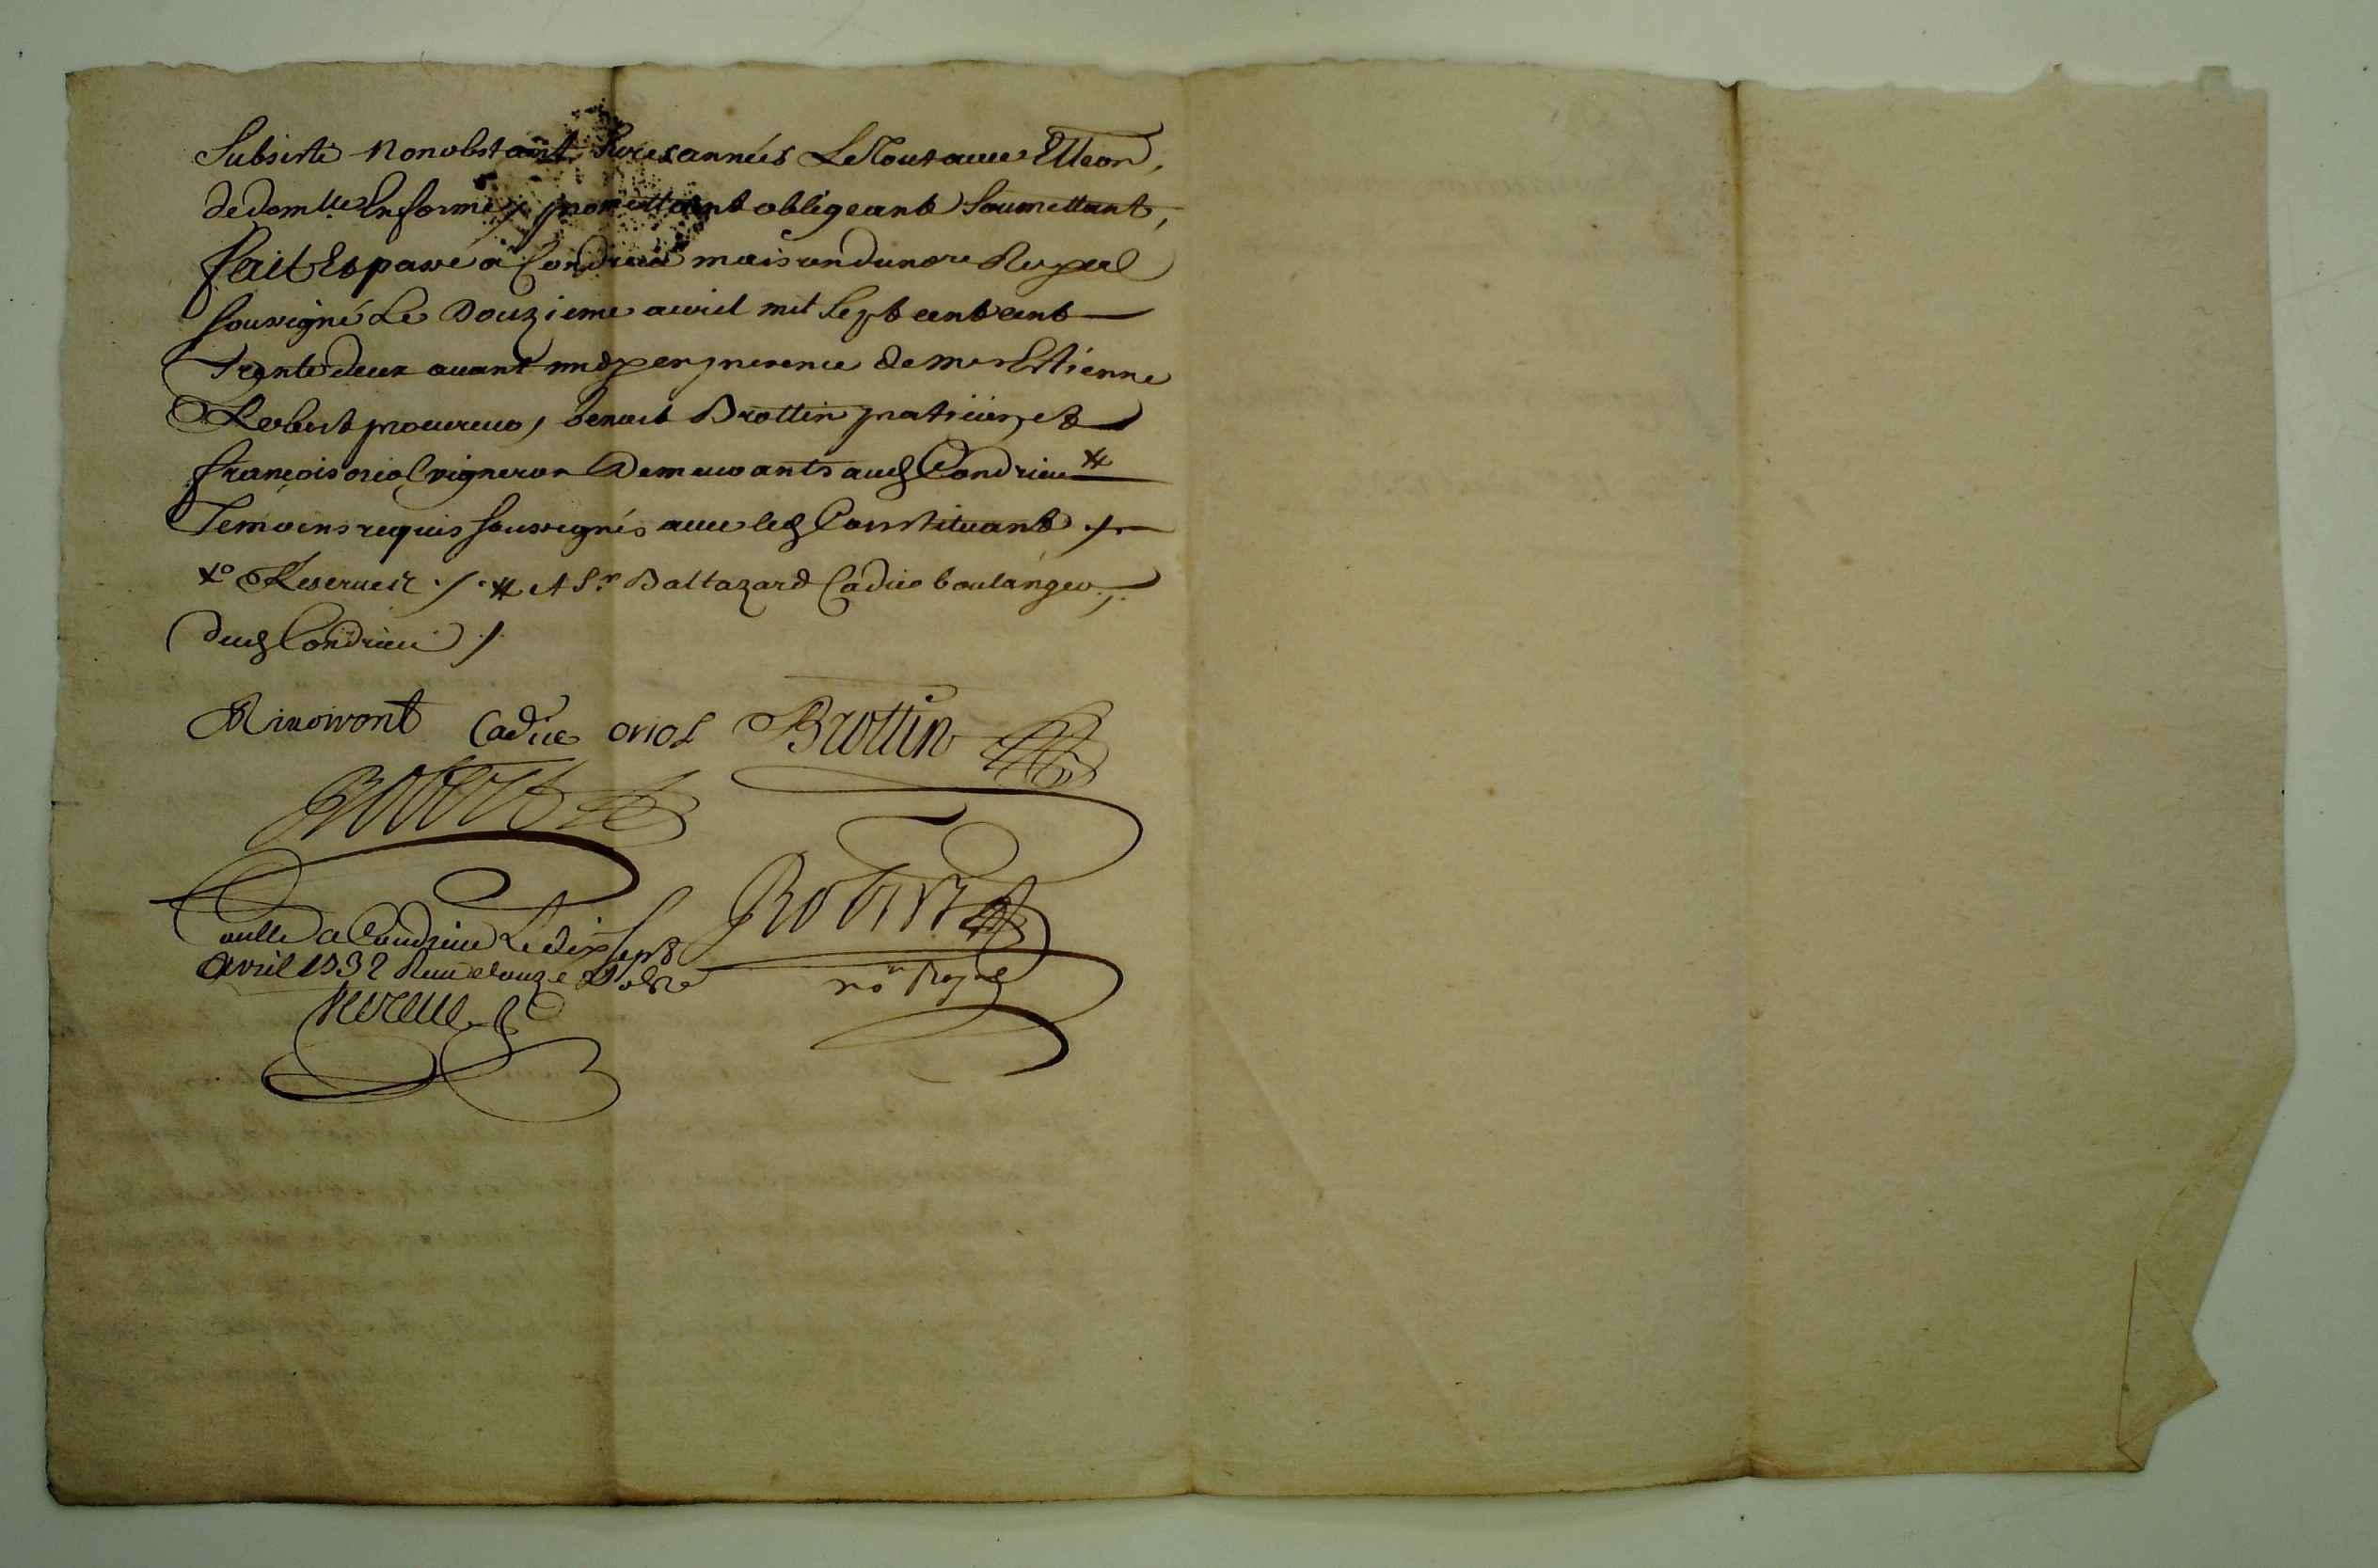 Subsisté nonobstant Sures années Le Tout avec Eleon,
de dom lle En forme, promettant obligeant Soumettant,
fait Et passé a Condrieu maison du nore Royal
soussigné Le Douzieme avril mil Sept cent cent
Trente deux avant midy en presence de me Estienne
Robert procureur, benoit Brottin patricien, et
françois oriol vigneron Demeurants aud Condrieu #
Temoins requis soussignés avec led Constituant ./.
xo Reserver ./. # et Sr. Baltazard Cadier boulanger
dud Condrieu ./.
Cadier oriol Brottin
Robert
Robert
nore Royal
Condrieu Le dix sept
avril 1732 Reçu douze s